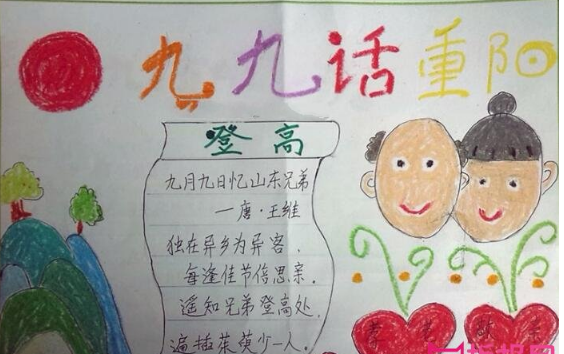 九九话重阳
登高
九月九日忆山东兄弟
—唐·王维
独在异乡为异客.
每逢佳节倍思亲.
遥知兄弟登高处.
遍插茱萸少一人.